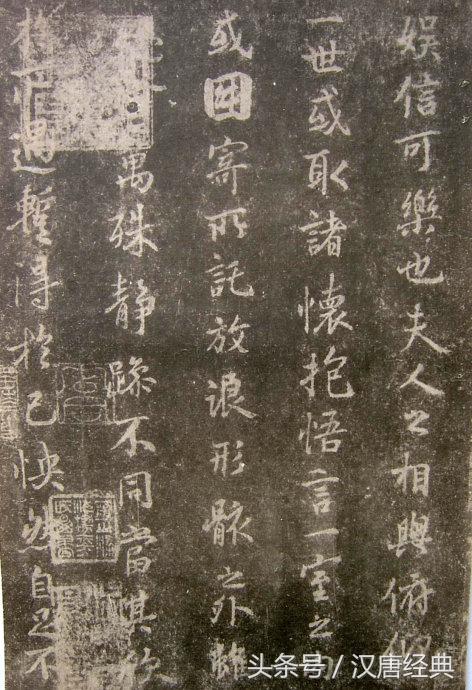 娛信可樂也夫人之相與俯仰
一世或取諸懷抱悟言一室之內
或因寄所託放浪形骸之外雖
萬殊靜躁不同當其欣
於所遇蹔得於己快然自足不
头条号 / 汉唐经典